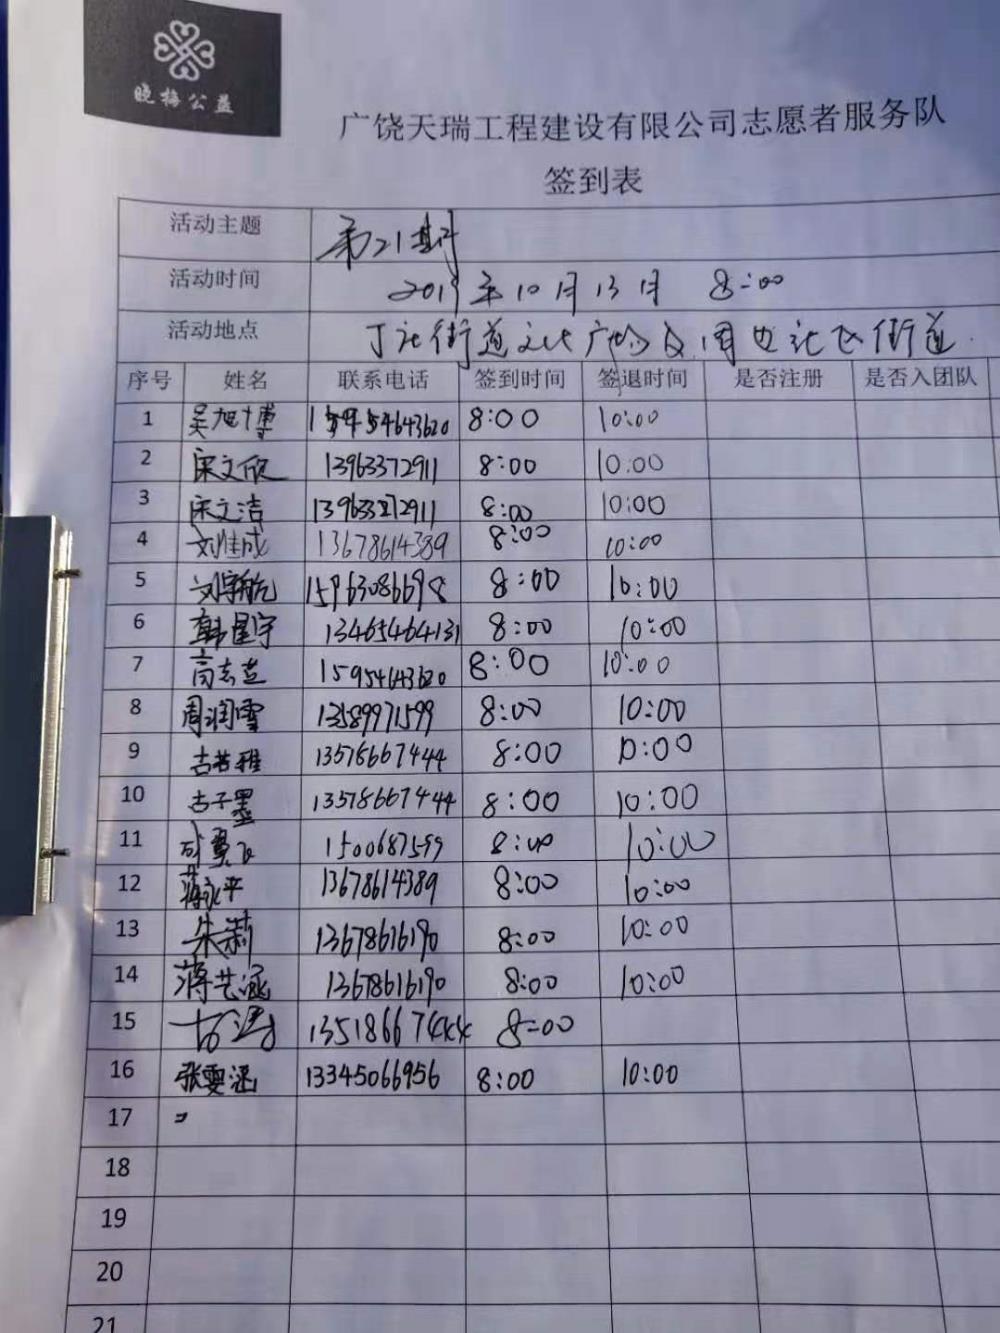 晓梅公益
广饶天瑞工程建设有限公司志愿者服务队
签到表
活动主题 第21期
活动时间 2019年10月13日 8:00
活动地点 丁社街道文化广场及周边社区街道.
序号 姓名 联系电话 签到时间 签退时间 是否注册 是否入团队
1 吴旭博 15954643620 8:00 10:00
2 宋文欣 13963372911 8:00 10:00
3 宋文洁 13963372911 8:00 10:00
4 刘佳成 13678614389 8:00 10:00
5 刘宇航 15963086698 8:00 10:00
6 韩星宇 13465464131 8:00 10:00
7 高志益 15954643620 8:00 10:00
8 周润雪 13589971599 8:00 10:00
9 古若雅 13578667444 8:00 10:00
10 古子墨 13578667444 8:00 10:00
11 1500687599 8:00 10:00
12 蒋永平 13678614389 8:00 10:00
13 朱莉 13678616190 8:00 10:00
14 蒋艺涵 13678616190 8:00 10:00
15 8:00
16 张雯涵 13345066956 8:00 10:00
17
18
19
20
21